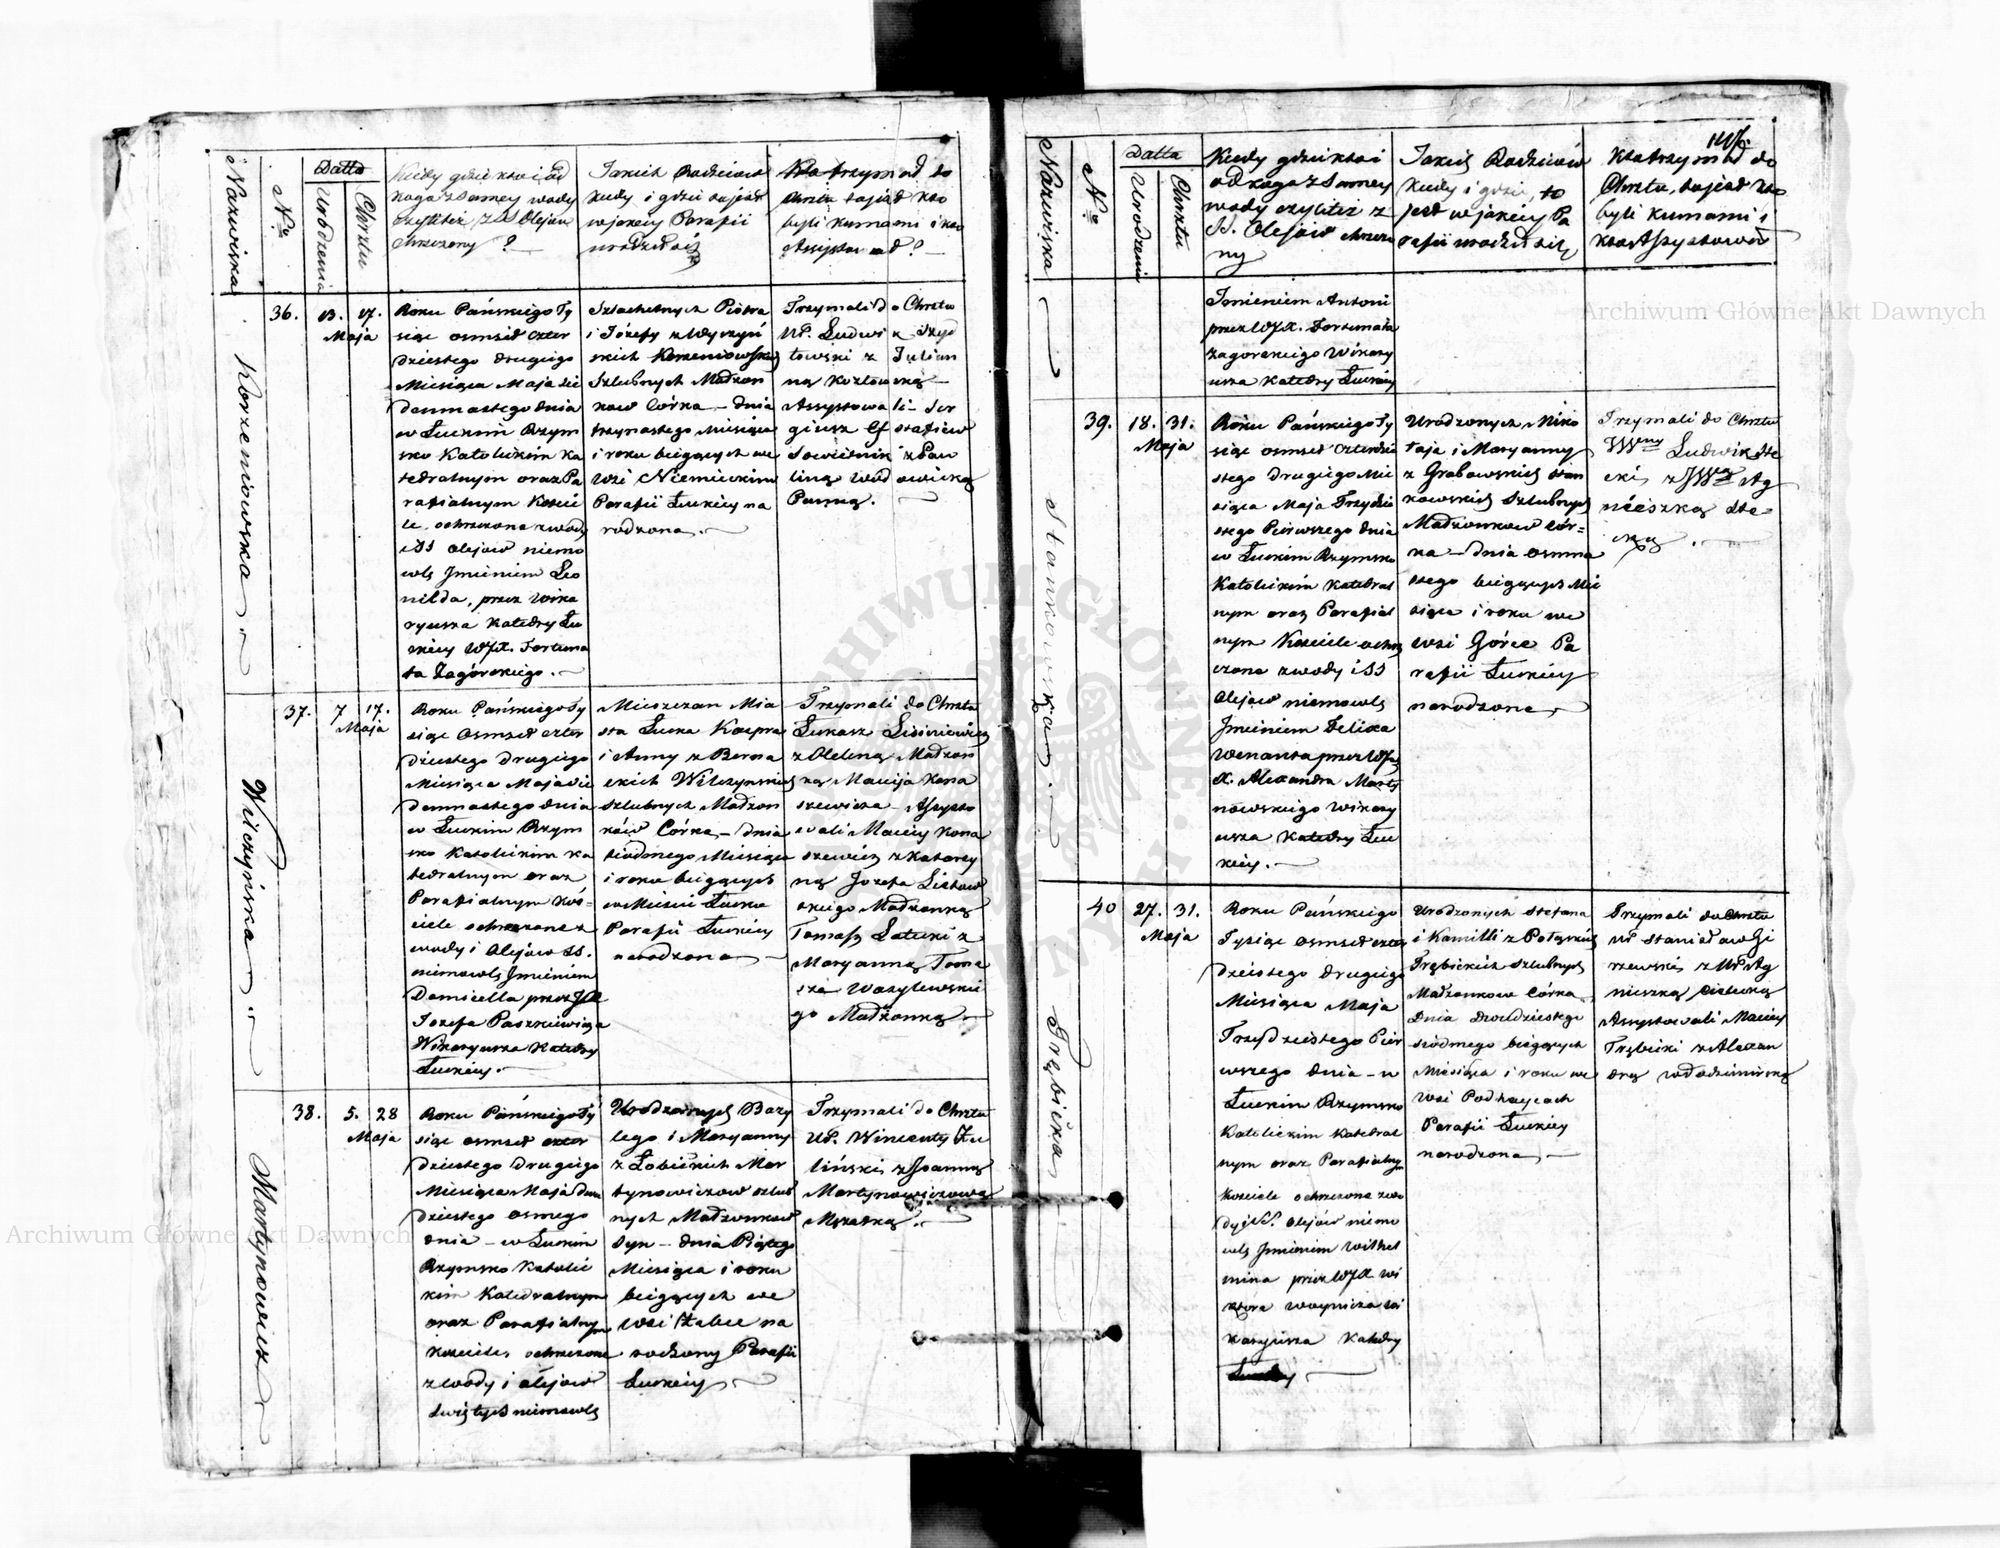 Nazwiska
No
Datta
Urodzenia
Chrztu
Kiedy gdzie kto i od
kogo z samey wody
czyliteż z SS Olejów
chrzczony ?
Jakich Rodziców
kiedy i gdzie to jest
w jakiey Parafii
urodził się
Kto trzymał do
chrztu to jest kto
byli kumami i kto
Assystował ?
Korzeniowska
36.
13. 17.
Maja
Roku Pańskiego Ty
siąc osmset czter
dziestego drugiego
Miesiąca Maja sie
demnastego dnia
w Łuckim Rzym
sko Katolickim ka
tedralnym oraz Pa
rafialnym Koście
le, ochrzczona z wody
i SS Olejow niemo
wle Jmieniem Leo
nilda, przez Wika
ryusza Katedry Łu
ckiey WJX. Fortuna
ta Zagórskiego.
Szlachetnych Piotra
i Józefy z Wyrzyń
skich Korzeniowskich
Szlubnych Małżon
kow Córka – dnia
trzynastego Miesiąca
i roku bieżących we
wsi Niemieckim
Parafii Łuckiey na
rodzona.
Trzymali do Chrztu
UP. Ludwik Szyd
łowski z Julian
ną Kozłowską
Assystowali – Ser
giusz Efstafiew
Sowietnik z Pau
liną Wodowicką
Panną.
Wilczyńska
37.
7 17.
Maja
Roku Pańskiego Ty
siąc Osmset czter
dziestego drugiego
Miesiąca Maja Sie
demnastego dnia
w Łuckim Rzym
sko Katolickim ka
tedralnym oraz
Parafialnym Koś=
ciele ochrzczone z
wody i Olejów SS.
niemowle Jmieniem
Domicella przez JX
Jozefa Paszkiewicza
Wikaryusza Katedry
Łuckiey.
Mieszczan Mia
sta Łucka Kacpra
i Anny z Berna
ckich Wilczyńskich
szlubnych Małżon
ków Córka – dnia
siodmego Miesiąca
i roku bieżących
w Mieście Łucku
Parafii Łuckiey
narodzona
Trzymali do Chrztu
Łukasz Lisiniewicz
z Heleną Małżon
ką Macieja Kona
szewicza – Assysto
wali Maciey Kona
szewicz z Katarzy
ną Jozefa Listow
skiego Małżonką
Tomasz Łatucki z
Maryanną Toma
sza Wasylewskie
go Małżonką
Martynowicz
38.
5. 28
Maja
Roku Pańskiego Ty
siąc osmset czter
dziestego Drugiego
Miesiąca Maja dwu
dziestego osmego
dnia – w Łuckim
Rzymsko Katolic
kim Katedralnym
oraz Parafialnym
Kościele, ochrzczone
z wody i Olejow
Świętych niemowle
Urodzonych Bazy
lego i Maryanny
z Łobickich Mar
tynowiczow szlub
nych Małżonkow
Syn – dnia Piątego
Miesiąca i roku
bieżących we
wsi Żabce na
rodzony Parafii
Łuckiey
Trzymali do Chrztu
UP. Wincenty Zu
liński z Joanną
Martynowiczową
Mężatką.
Nazwiska
No
Datta
Urodzenia
Chrztu
Kiedy gdzie kto i
od kogo z samey
wody czyliteż z
SS. Olejów chrzczo
ny
Jakich Rodziców
kiedy i gdzie, to
jest w jakiey Pa
rafii urodził się
Kto trzymał do
Chrztu, to jest kto
byli kumami i
kto Assystował
Jmieniem Antoni
przez WJX. Fortunata
Zagorskiego Wikary
usza Katedry Łuckiey
Stankowska
39.
18. 31.
Maja
Roku Pańskiego Ty
siąc osmset czterdzie
stego drugiego Mie
siąca Maja Trzydzie
stego Pierwszego dnia
w Łuckim Rzymsko
Katolickim Katedral
nym oraz Parafial
nym Kościele ochrz
czona z wody i SS
Olejow niemowle
Jmieniem Felixa
Wenanta przez WJ
X. Alexandra Marty
nowskiego Wikary
usza Katedry Łuc
kiey.
Urodzonych Miko
łaja i Maryanny
z Grabowskich Stan
kowskich Szlubnych
Małżonkow Cór=
ka – dnia osmna
stego bieżących Mie
siąca i roku we
wsi Górce Pa
rafii Łuckiey
narodzona
Trzymali do Chrztu
Ludwik Ste
cki z Ag
nieszką Ste
cką
Trębicka
40
27. 31.
Maja
Roku Pańskiego
Tysiąc osmset czter
dziestego drugiego
Miesiąca Maja
Trzydziestego Pier
wszego dnia – w
Łuckim Rzymsko
Katolickim Katedral
nym oraz Parafialnym
Kościele ochrzczona z wo
dy i SS. Olejów niemo
wle Jmieniem Wilhel
mina przez WJX Wi
ktora Woynicza Wi
karyusza Katedry
Łuckiey
Urodzonych Stefana
i Kamilli z Potęskich
Trębickich szlubnych
Małżonkow Córka
Dnia Dwudziestego
siódmego bieżących
Miesiąca i roku we
wsi Podhaycach
Parafii Łuckiey
narodzona
Trzymali do Chrztu
UP Stanisław Gi
rzewski z UP Ag
nieszką
Assystowali Maciey
Trębicki z Alexan
drą Włodzimirską
Archiwum Główne Akt Dawnych
Archiwum Główne Akt Dawnych
ARCHIWUM GŁÓWNE AKT DAWNYCH